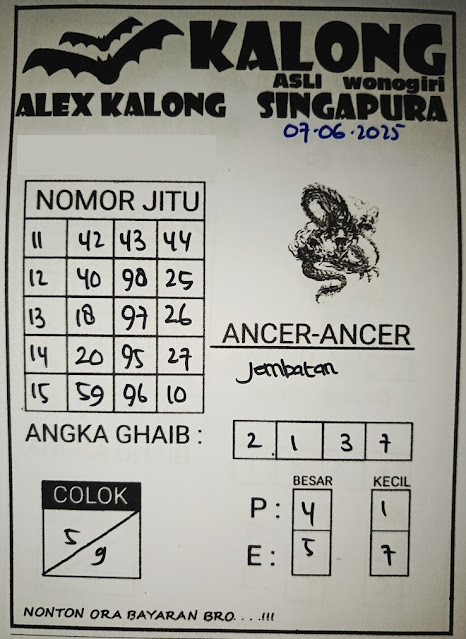 KALONG
ASLI wonogiri
ALEX KALONG SINGAPURA
07-06-2025
NOMOR JITU
11 42 43 44
12 40 98 25
13 18 97 26
14 20 95 27
15 59 96 10
ANCER-ANCER
Jembatan
ANGKA GHAIB :
2 1 3 7
COLOK
5
9
BESAR KECIL
P : 4 1
E : 5 7
NONTON ORA BAYARAN BRO. . . .!!!